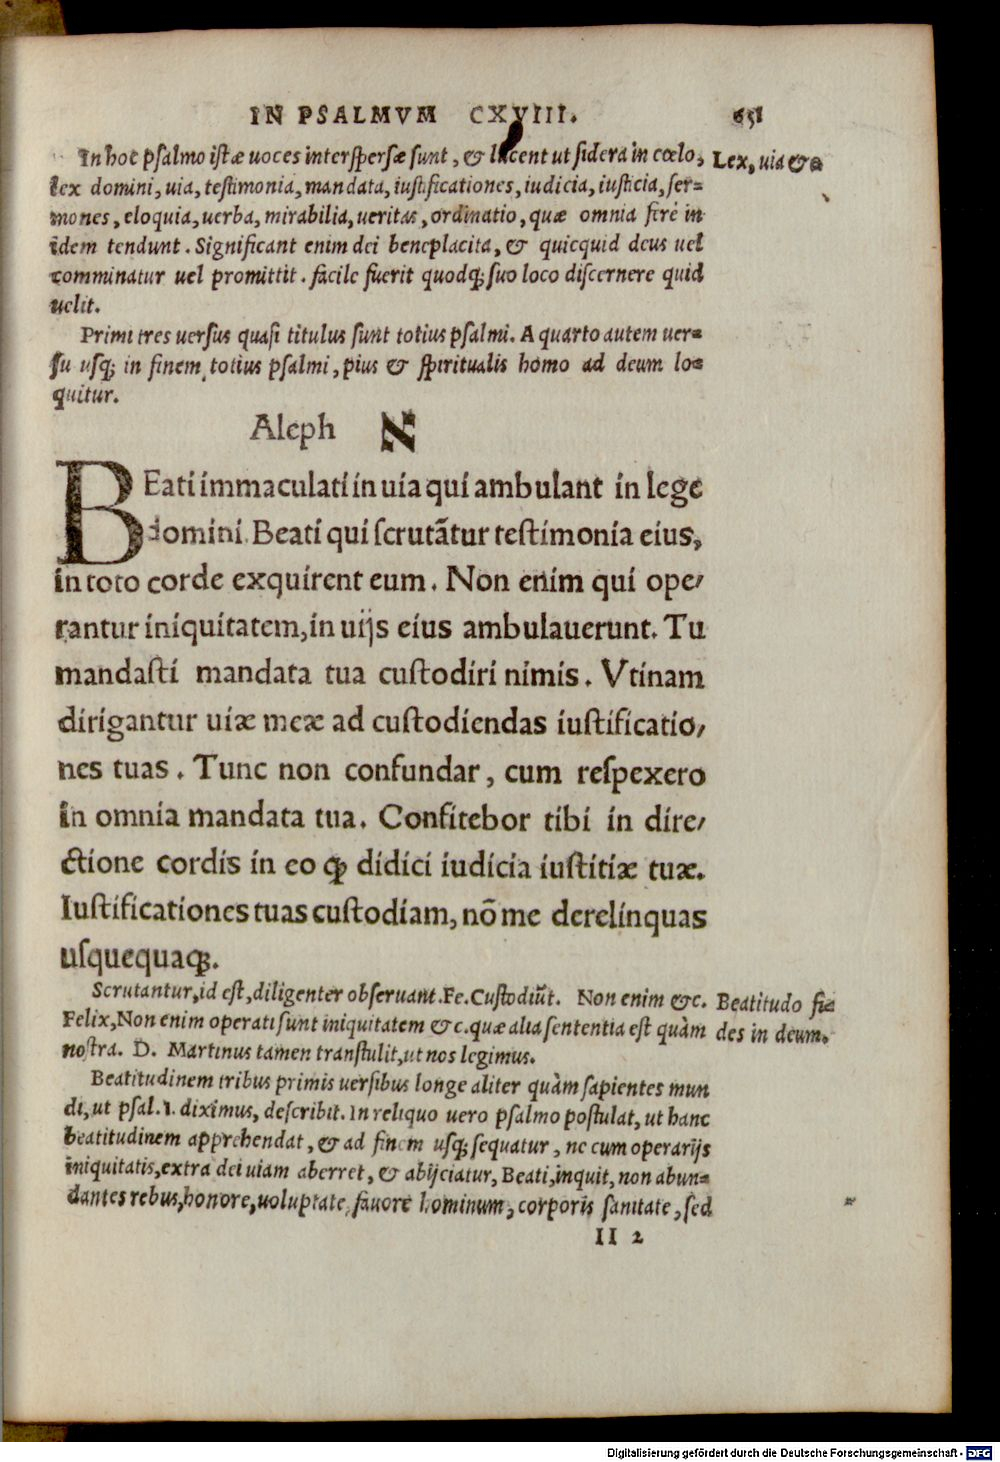 IN PSALMVM CXVIII. 651
In hoc psalmo istæ uoces interspersæ sunt, & lucent ut sidera in cœlo, Lex, uia &c
lex domini, uia, testimonia, mandata, iustificationes, iudicia, iusticia, ser=
mones, eloquia, uerba, mirabilia, ueritas, ordinatio, quæ omnia ferè in
idem tendunt. Significant enim dei beneplacita, & quicquid deus uel
comminatur uel promittit. facile fuerit quodq; suo loco discernere quid
uelit.
Primi tres uersus quasi titulus sunt totius psalmi. A quarto autem uer=
su usq; in finem totius psalmi, pius & spiritualis homo ad deum lo=
quitur.
Aleph א
BEati immaculati in uia qui ambulant in lege
domini. Beati qui scrutãtur testimonia eius,
in toto corde exquirent eum. Non enim qui ope/
rantur iniquitatem, in uijs eius ambulauerunt. Tu
mandasti mandata tua custodiri nimis. Vtinam
dirigantur uiæ meæ ad custodiendas iustificatio/
nes tuas. Tunc non confundar, cum respexero
in omnia mandata tua. Confitebor tibi in dire/
ctione cordis in eo ꝙ didici iudicia iustitiæ tuæ.
Iustificationes tuas custodiam, nõ me derelinquas
usquequaq;.
Scrutantur, id est, diligenter obseruant. Fe. Custodiũt. Non enim &c. Beatitudo fi=
Felix, Non enim operati sunt iniquitatem &c. quæ alia sententia est quàm des in deum.
nostra. D. Martinus tamen transtulit, ut nos legimus.
Beatitudinem tribus primis uersibus longe aliter quàm sapientes mun
di, ut psal. 1. diximus, describit. In reliquo uero psalmo postulat, ut hanc
beatitudinem apprehendat, & ad finem usq; sequatur, ne cum operarijs
iniquitatis, extra dei uiam aberret, & abijciatur, Beati, inquit, non abun=
dantes rebus, honore, uoluptate, fauore hominum, corporis sanitate, sed
II 2
Digitalisierung gefördert durch die Deutsche Forschungsgemeinschaft - DFG